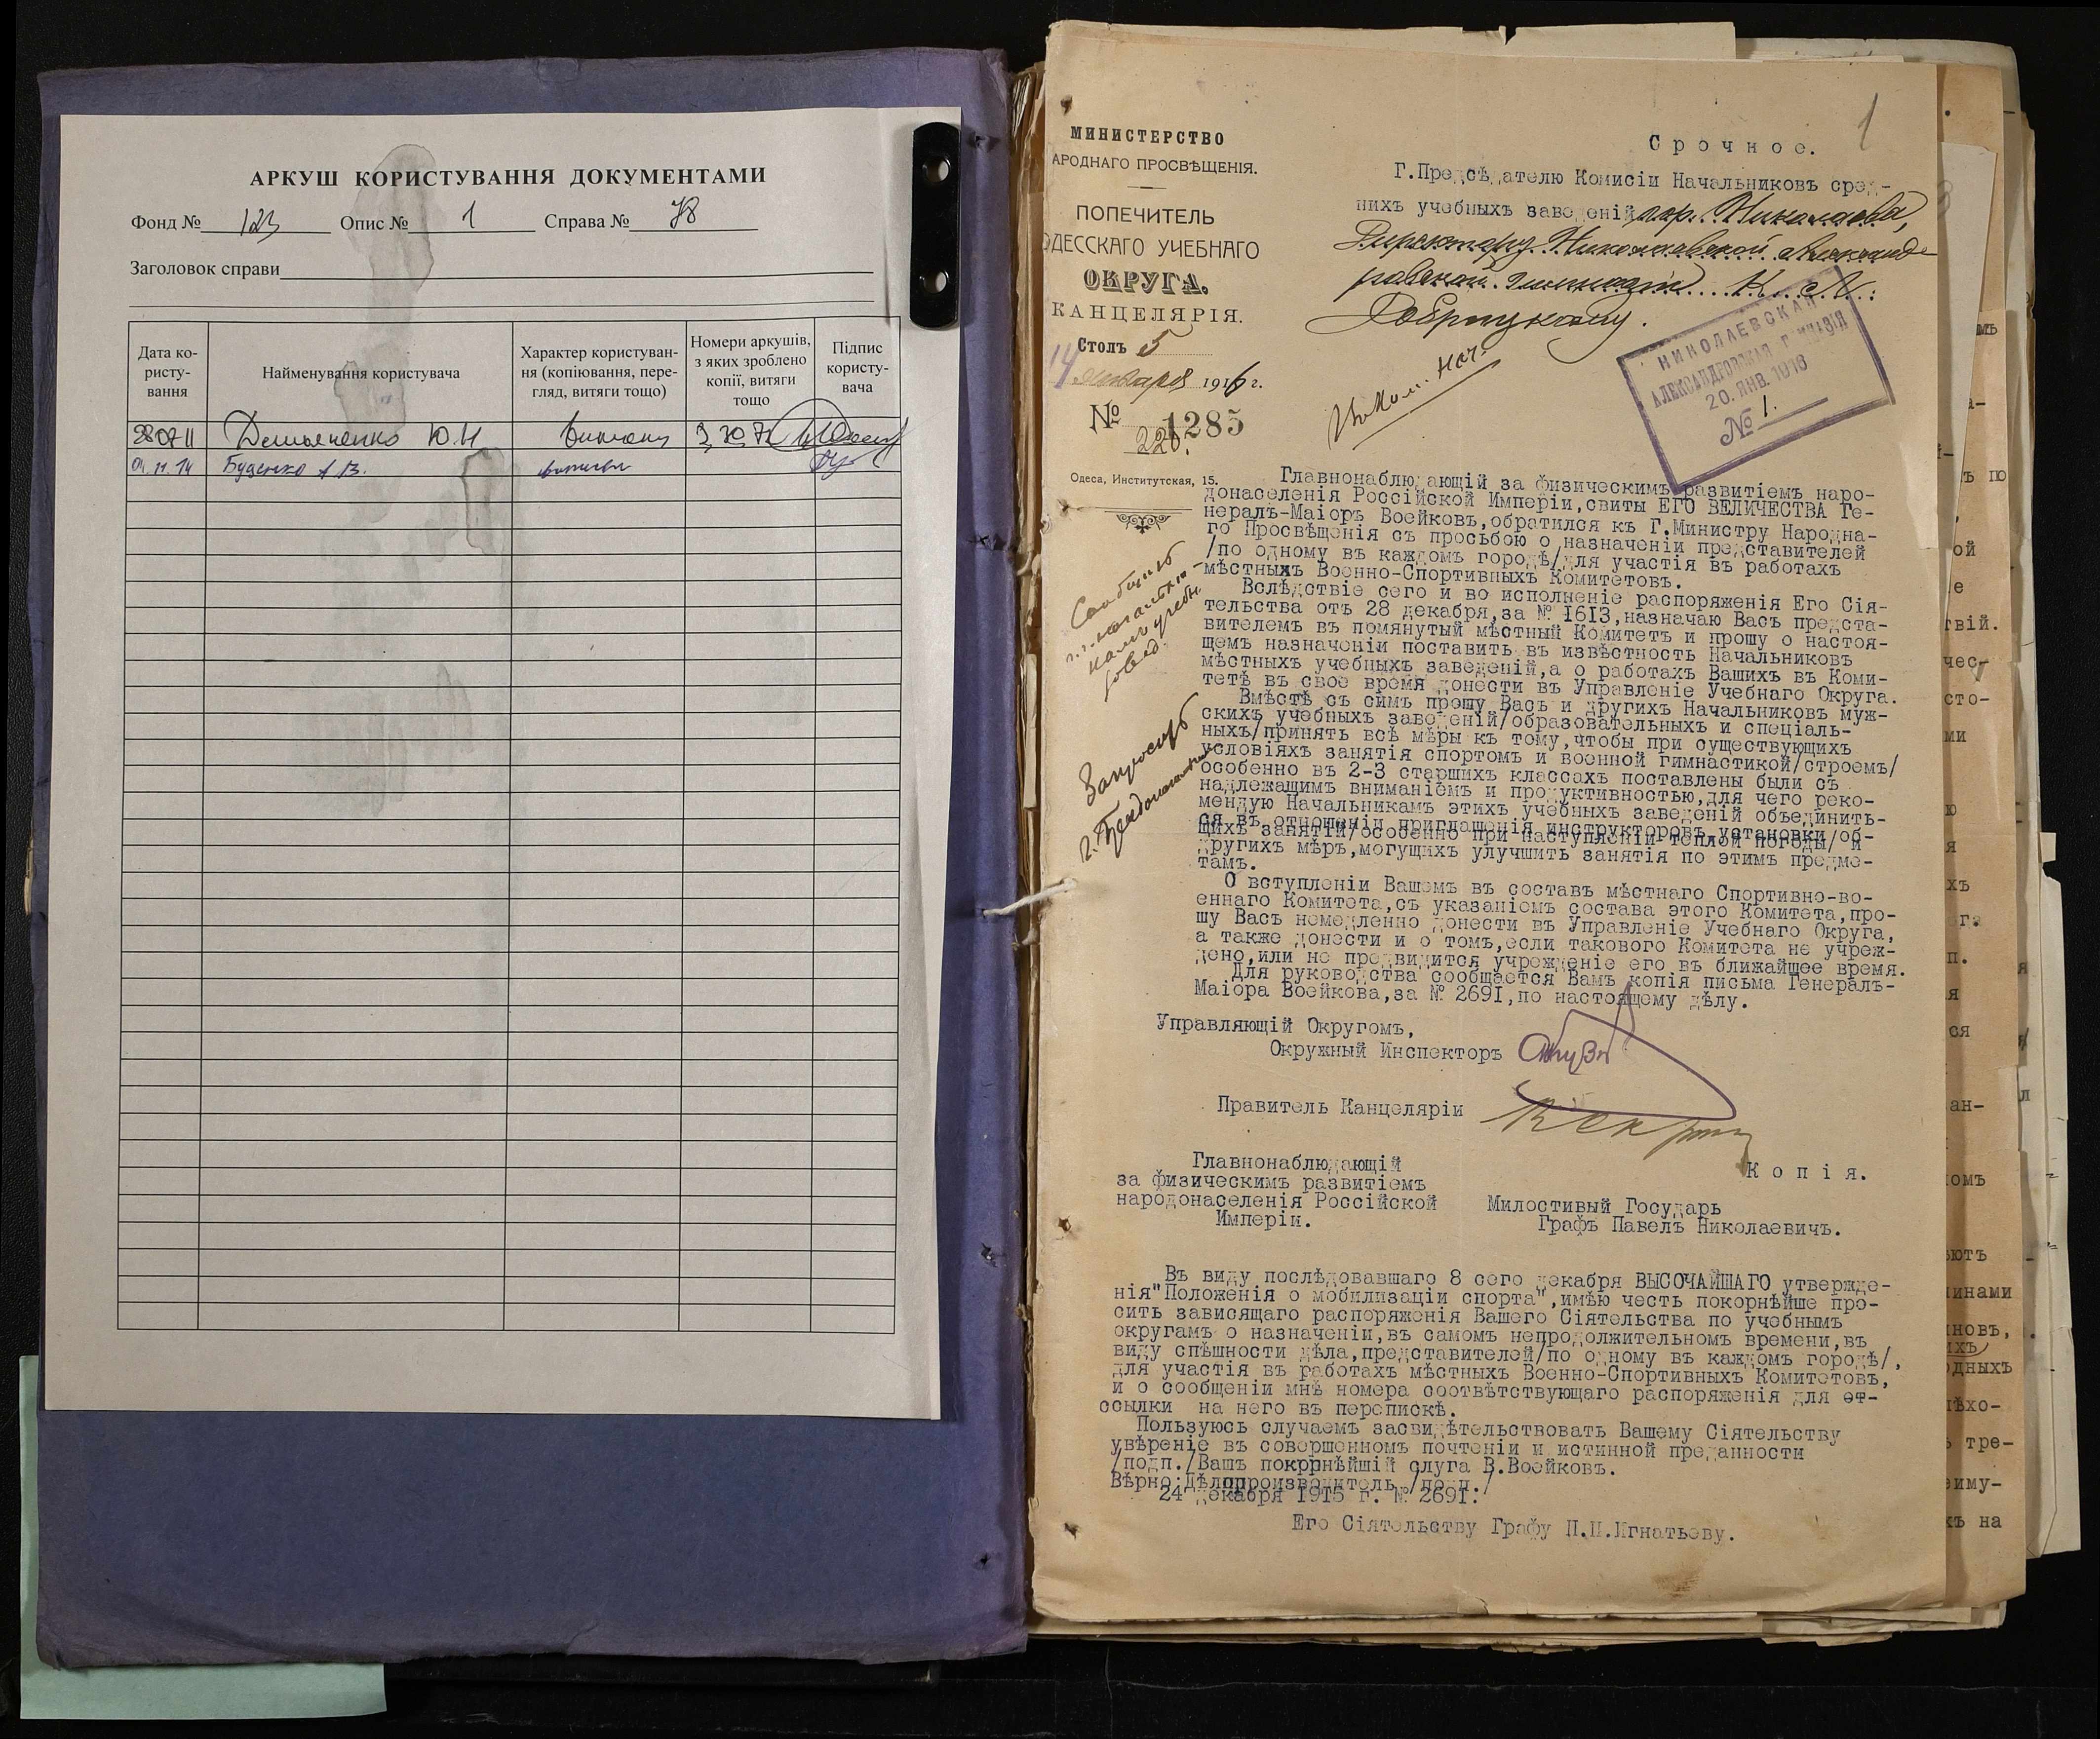 АРКУШ КОРИСТУВАННЯ ДОКУМЕНТАМИ
Фонд № 123 Опис № 1 Справа № 78
Заголовок справи
Дата ко-
ристу-
вання
Найменування користувача
Характер користуван-
ня (копіювання, пере-
гляд, витяги тощо)
Номери аркушів,
з яких зроблено
копії, витяги
тощо
Підпис
користу-
вача
Ю.И
01.11.14 Буденко А В.
1
МИНИСТЕРСТВО
АРОДНАГО ПРОСВѢЩЕНІЯ.
ПОПЕЧИТЕЛЬ
ОДЕССКАГО УЧЕБНАГО
ОКРУГА.
КАНЦЕЛЯРІЯ.
Столъ 5
14 января 1916 г.
№ 1285
228.
Одеса, Институтская, 15.
Срочное.
Г.Предсѣдателю Комисіи Начальниковъ сред-
нихъ учебныхъ заведеній гор. Николаева,
Директору Николаевской Александ-
ровской Гимназіи К. Л.
Добрицкому.
НИКОЛАЕВСКАЯ
АЛЕКСАНДРОВСКАЯ ГИМНАЗІЯ
20. ЯНВ. 1916
№ 1.
Главнонаблюдающій за физическимъ развитіемъ наро-
донаселенія Россійской Имперіи,свиты ЕГО ВЕЛИЧЕСТВА Ге-
нералъ-Маіоръ Воейковъ,обратился къ Г.Министру Народна-
го Просвѣщенія съ просьбою о назначеніи представителей
/по одному въ каждомъ городѣ/для участія въ работахъ
мѣстныхъ Военно-Спортивныхъ Комитетовъ.
Вслѣдствіе сего и во исполненіе распоряженія Его Сія-
тельства отъ 28 декабря,за № 1613,назначаю Васъ предста-
вителемъ въ помянутый мѣстный Комитетъ и прошу о настоя-
щемъ назначеніи поставить въ извѣстность Начальниковъ
мѣстныхъ учебныхъ заведеній,а о работахъ Вашихъ въ Коми-
тетѣ въ свое время донести въ Управленіе Учебнаго Округа.
Вмѣстѣ съ симъ прошу Васъ и другихъ Начальниковъ муж-
скихъ учебныхъ заведеній/образовательныхъ и спеціаль-
ныхъ/принять всѣ мѣры къ тому,чтобы при существующихъ
условіяхъ занятія спортомъ и военной гимнастикой/строемъ/
особенно въ 2-3 старшихъ классахъ поставлены были съ
надлежащимъ вниманіемъ и продуктивностью,для чего реко-
мендую Начальникамъ этихъ учебныхъ заведеній объединить-
ся въ отношеніи приглашенія инструкторовъ,установки/об-
щихъ занятій/особенно при наступленіи теплой погоды/ и
другихъ мѣръ,могущихъ улучшить занятія по этимъ предме-
тамъ.
О вступленіи Вашемъ въ составъ мѣстнаго Спортивно-во-
еннаго Комитета,съ указаніемъ состава этого Комитета,про-
шу Васъ немедленно донести въ Управленіе Учебнаго Округа,
а также донести и о томъ,если такового Комитета не учреж-
дено,или не предвидится учрежденіе его въ ближайшее время.
Для руководства сообщается Вамъ копія письма Генералъ-
Маіора Воейкова,за № 2691,по настоящему дѣлу.
Сообщить
Запросить
Управляющій Округомъ,
Окружный Инспекторъ
Правитель Канцеляріи
Главнонаблюдающій
за физическимъ развитіемъ
народонаселенія Россійской
Имперіи.
Копія.
Милостивый Государь
Графъ Павелъ Николаевичъ.
Въ виду послѣдовавшаго 8 сего декабря ВЫСОЧАЙШАГО утвержде-
нія"Положенія о мобилизаціи спорта",имѣю честь покорнѣйше про-
сить зависящаго распоряженія Вашего Сіятельства по учебнымъ
округамъ о назначеніи,въ самомъ непродолжительномъ времени,въ
виду спѣшности дѣла,представителей/по одному въ каждомъ городѣ/,
для участія въ работахъ мѣстныхъ Военно-Спортивныхъ Комитетовъ,
и о сообщеніи мнѣ номера соотвѣтствующаго распоряженія для от-
ссылки на него въ перепискѣ.
Пользуюсь случаемъ засвидѣтельствовать Вашему Сіятельству
увѣреніе въ совершенномъ почтеніи и истинной преданности
/подп./Вашъ покорнѣйшій слуга В.Воейковъ.
Вѣрно:Дѣлопроизводитель /подп./
24 декабря 1915 г. № 2691.
Его Сіятельству Графу П.Н.Игнатьеву.